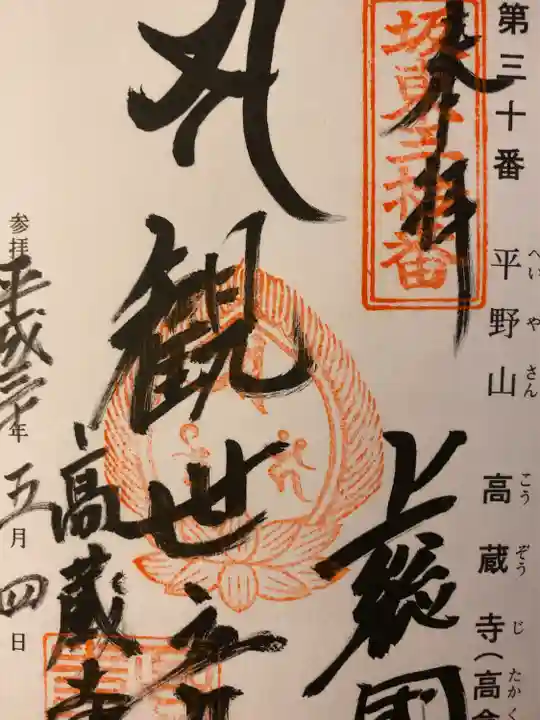 第三十番 平野山 高蔵寺(高倉
へいやさん こうぞうじ たかく
坂東三十番
奉拝
上総国
観世音
高蔵寺
参拝 平成三十年 五月 四日